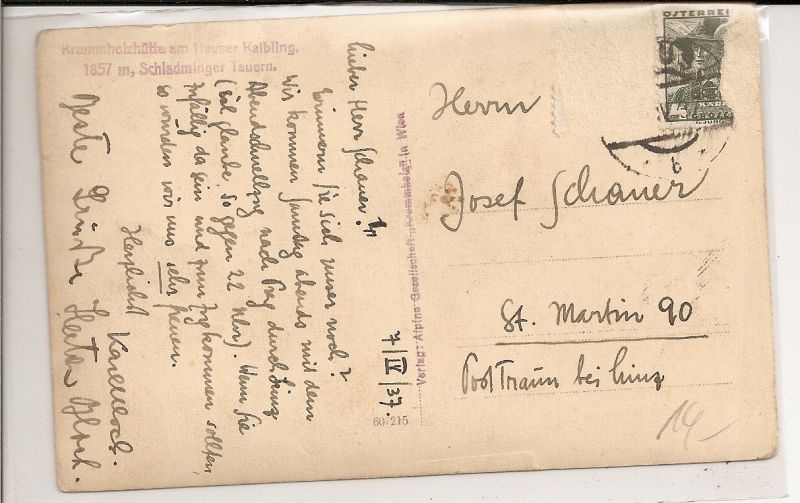 Krummholzhütte am Hauser Kaibling.
1857 m, Schladminger Tauern.
7/IV/37.
Lieber Herr Schauer!
Erinnern Sie sich unser noch?
Wir kommen Samstag abends mit dem
Abendschnellzug nach Prag durch Linz
(ich glaube, so gegen 22 Uhr). Wenn Sie
zufällig da sein und zum Zug kommen sollten,
so würden wir uns sehr freuen.
Herzlichst
Beste Grüße Herta
Verlag: Alpine Gesellschaft „Krummholz“ in Wien
607215
ÖSTERREI
Herrn
Josef Schauer
St. Martin 90
Post Traun bei Linz
14-